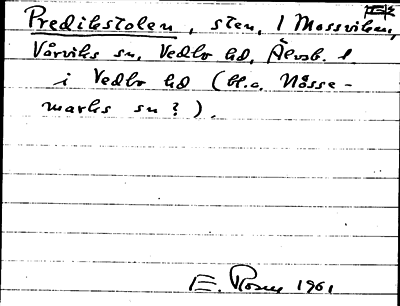 Predikstolen, sten, i Mossviken,
Vårviks sn, Vedbo hd, Älvsb. l
i Vedbo hd (bl.a. Nösse-
marks sn?).
E. 1961